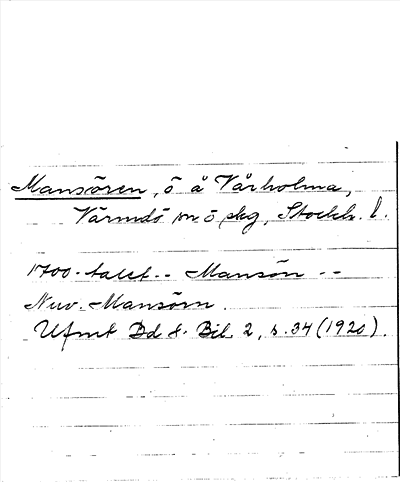 Mansören, ö å Vårholma,
Värmdö m. ö skg, Stockh. l.
1700-talet -- Mansön --
Nuv. Mansörn.
Ufmt Bd 8. Bil. 2, s. 34 (1920).